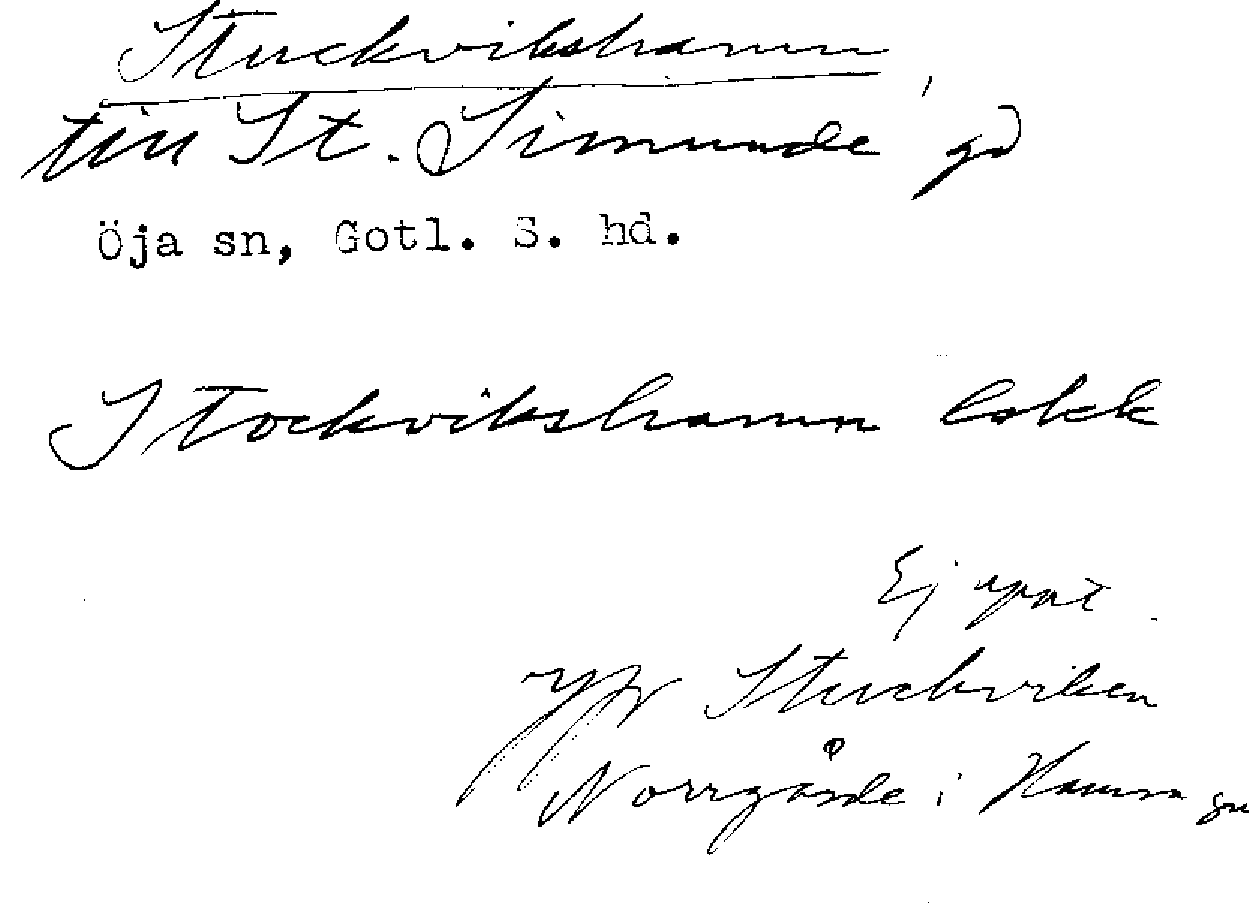 Stuckvikshamn,
till St. Simunde gd
Öja sn, Gotl. S. hd.
Stockvikshamn lokk
Ej uppt.
Jfr Stuckviken
Norrgårde i Hamra sn